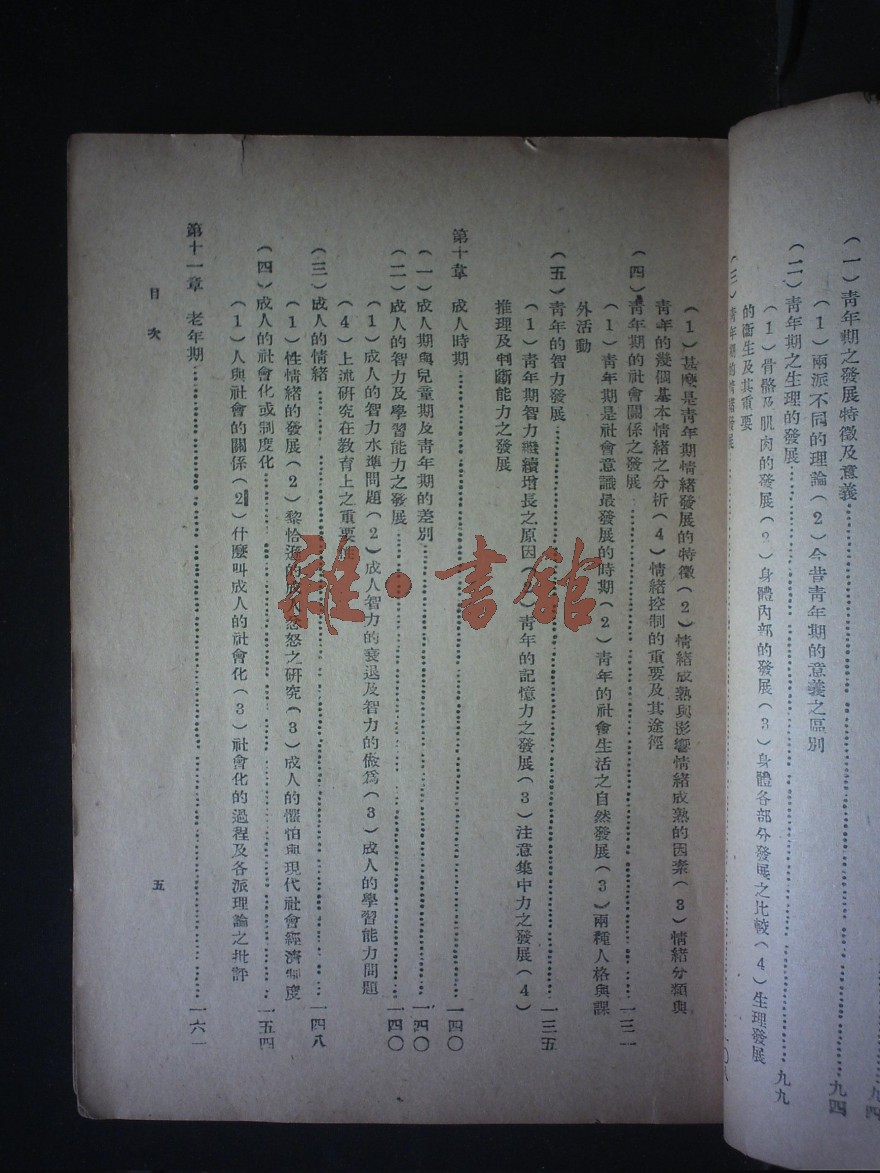 (一)靑年期之發展特徵及意義……九四
(1)兩派不同的理論(2)今昔靑年期的意義之區別
(二)靑年期之生理的發展……九九
(1)骨骼及肌肉的發展(2)身體內部的發展(3)身體各部分發展之比較(4)生理發展
的衞生及其重要
(三)靑年期的情緒發展……一〇八
(1)甚麼是靑年期情緒發展的特徵(2)情緒成熟與影響情緒成熟的因素(3)情緒分類與
靑年的幾個基本情緒之分析(4)情緒控制的重要及其途徑
(四)靑年期的社會關係之發展……一三一
(1)靑年期是社會意識最發展的時期(2)靑年的社會生活之自然發展(3)兩種人格與課
外活動
(五)靑年的智力發展……一三五
(1)靑年期智力繼續增長之原因(2)靑年的記憶力之發展(3)注意集中力之發展(4)
推理及判斷能力之發展
第十章 成人時期……一四〇
(一)成人期與兒童期及靑年期的差別……一四〇
(二)成人的智力及學習能力之發展……一四〇
(1)成人的智力水準問題(2)成人智力的衰退及智力的做爲(3)成人的學習能力問題
(4)上述研究在敎育上之重要性
(三)成人的情緒……一四八
(1)性情緒的發展(2)黎恰遜的成人忿怒之研究(3)成人的懼怕與現代社會經濟制度
(四)成人的社會化或制度化……一五四
(1)人與社會的關係(2)什麼叫成人的社會化(3)社會化的過程及各派理論之批評
第十一章 老年期……一六一
目次
五
雜·書館